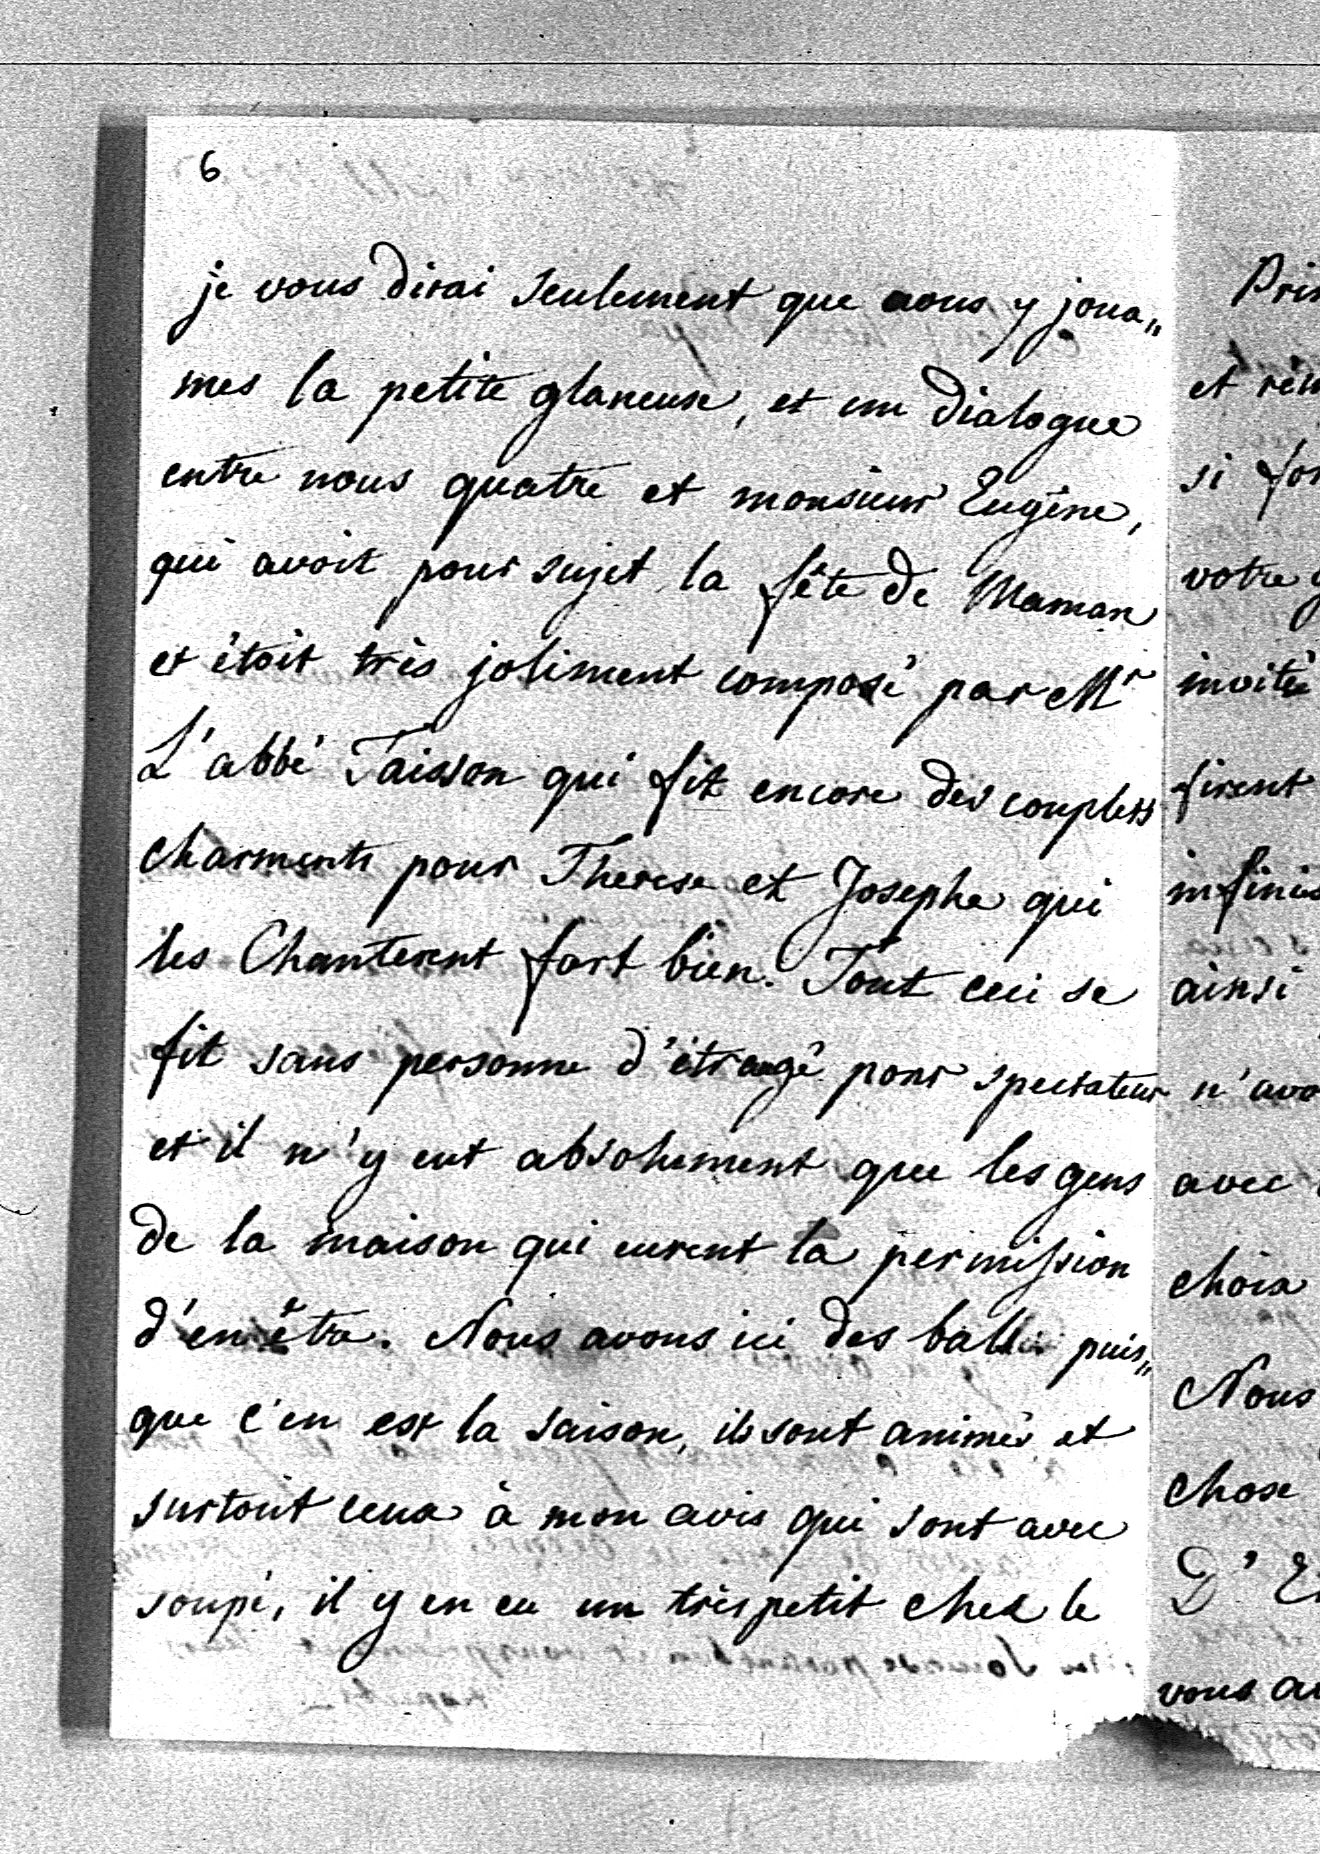 6
je vous dirai seulement que nous y joua„
mes la petite glaneuse, et un dialogue
entre nous quatre et monsieur Eugène,
qui avoit pour sujet la fête de Maman
et étoit très joliment composé par Mr
L'abbé Taisson qui fit encore des couplets
charments pour Therese et Josephe qui
les Chanterent fort bien. Tout ceci se
fit sans personne d'étrangé pour spectateur
et il n'y eut absolument que les gens
de la maison qui eurent la permission
d'en être. Nous avons ici des balls puis„
que c'en est la saison, ils sont animés et
surtout ceux à mon avis qui sont avec
soupé, il y en eu un très petit chez le
et
si
votre
invité
firent
ainsi
avec
choix
Nous
chose
vous